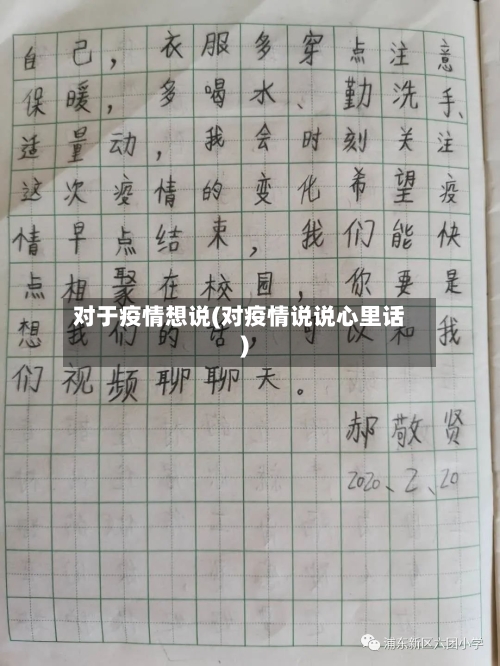 自己，衣服多穿点注意
保暖，多喝水、勤洗手、
适量动，我会时刻关注
这次疫情的变化希望疫
情早点结束，我们能快
点相聚在校园，你要是
想我们的话，可以和我
对于疫情想说(对疫情说说心里话
)
们视频聊聊天。
郝敬贤
2020、2、20
浦东新区六团小学